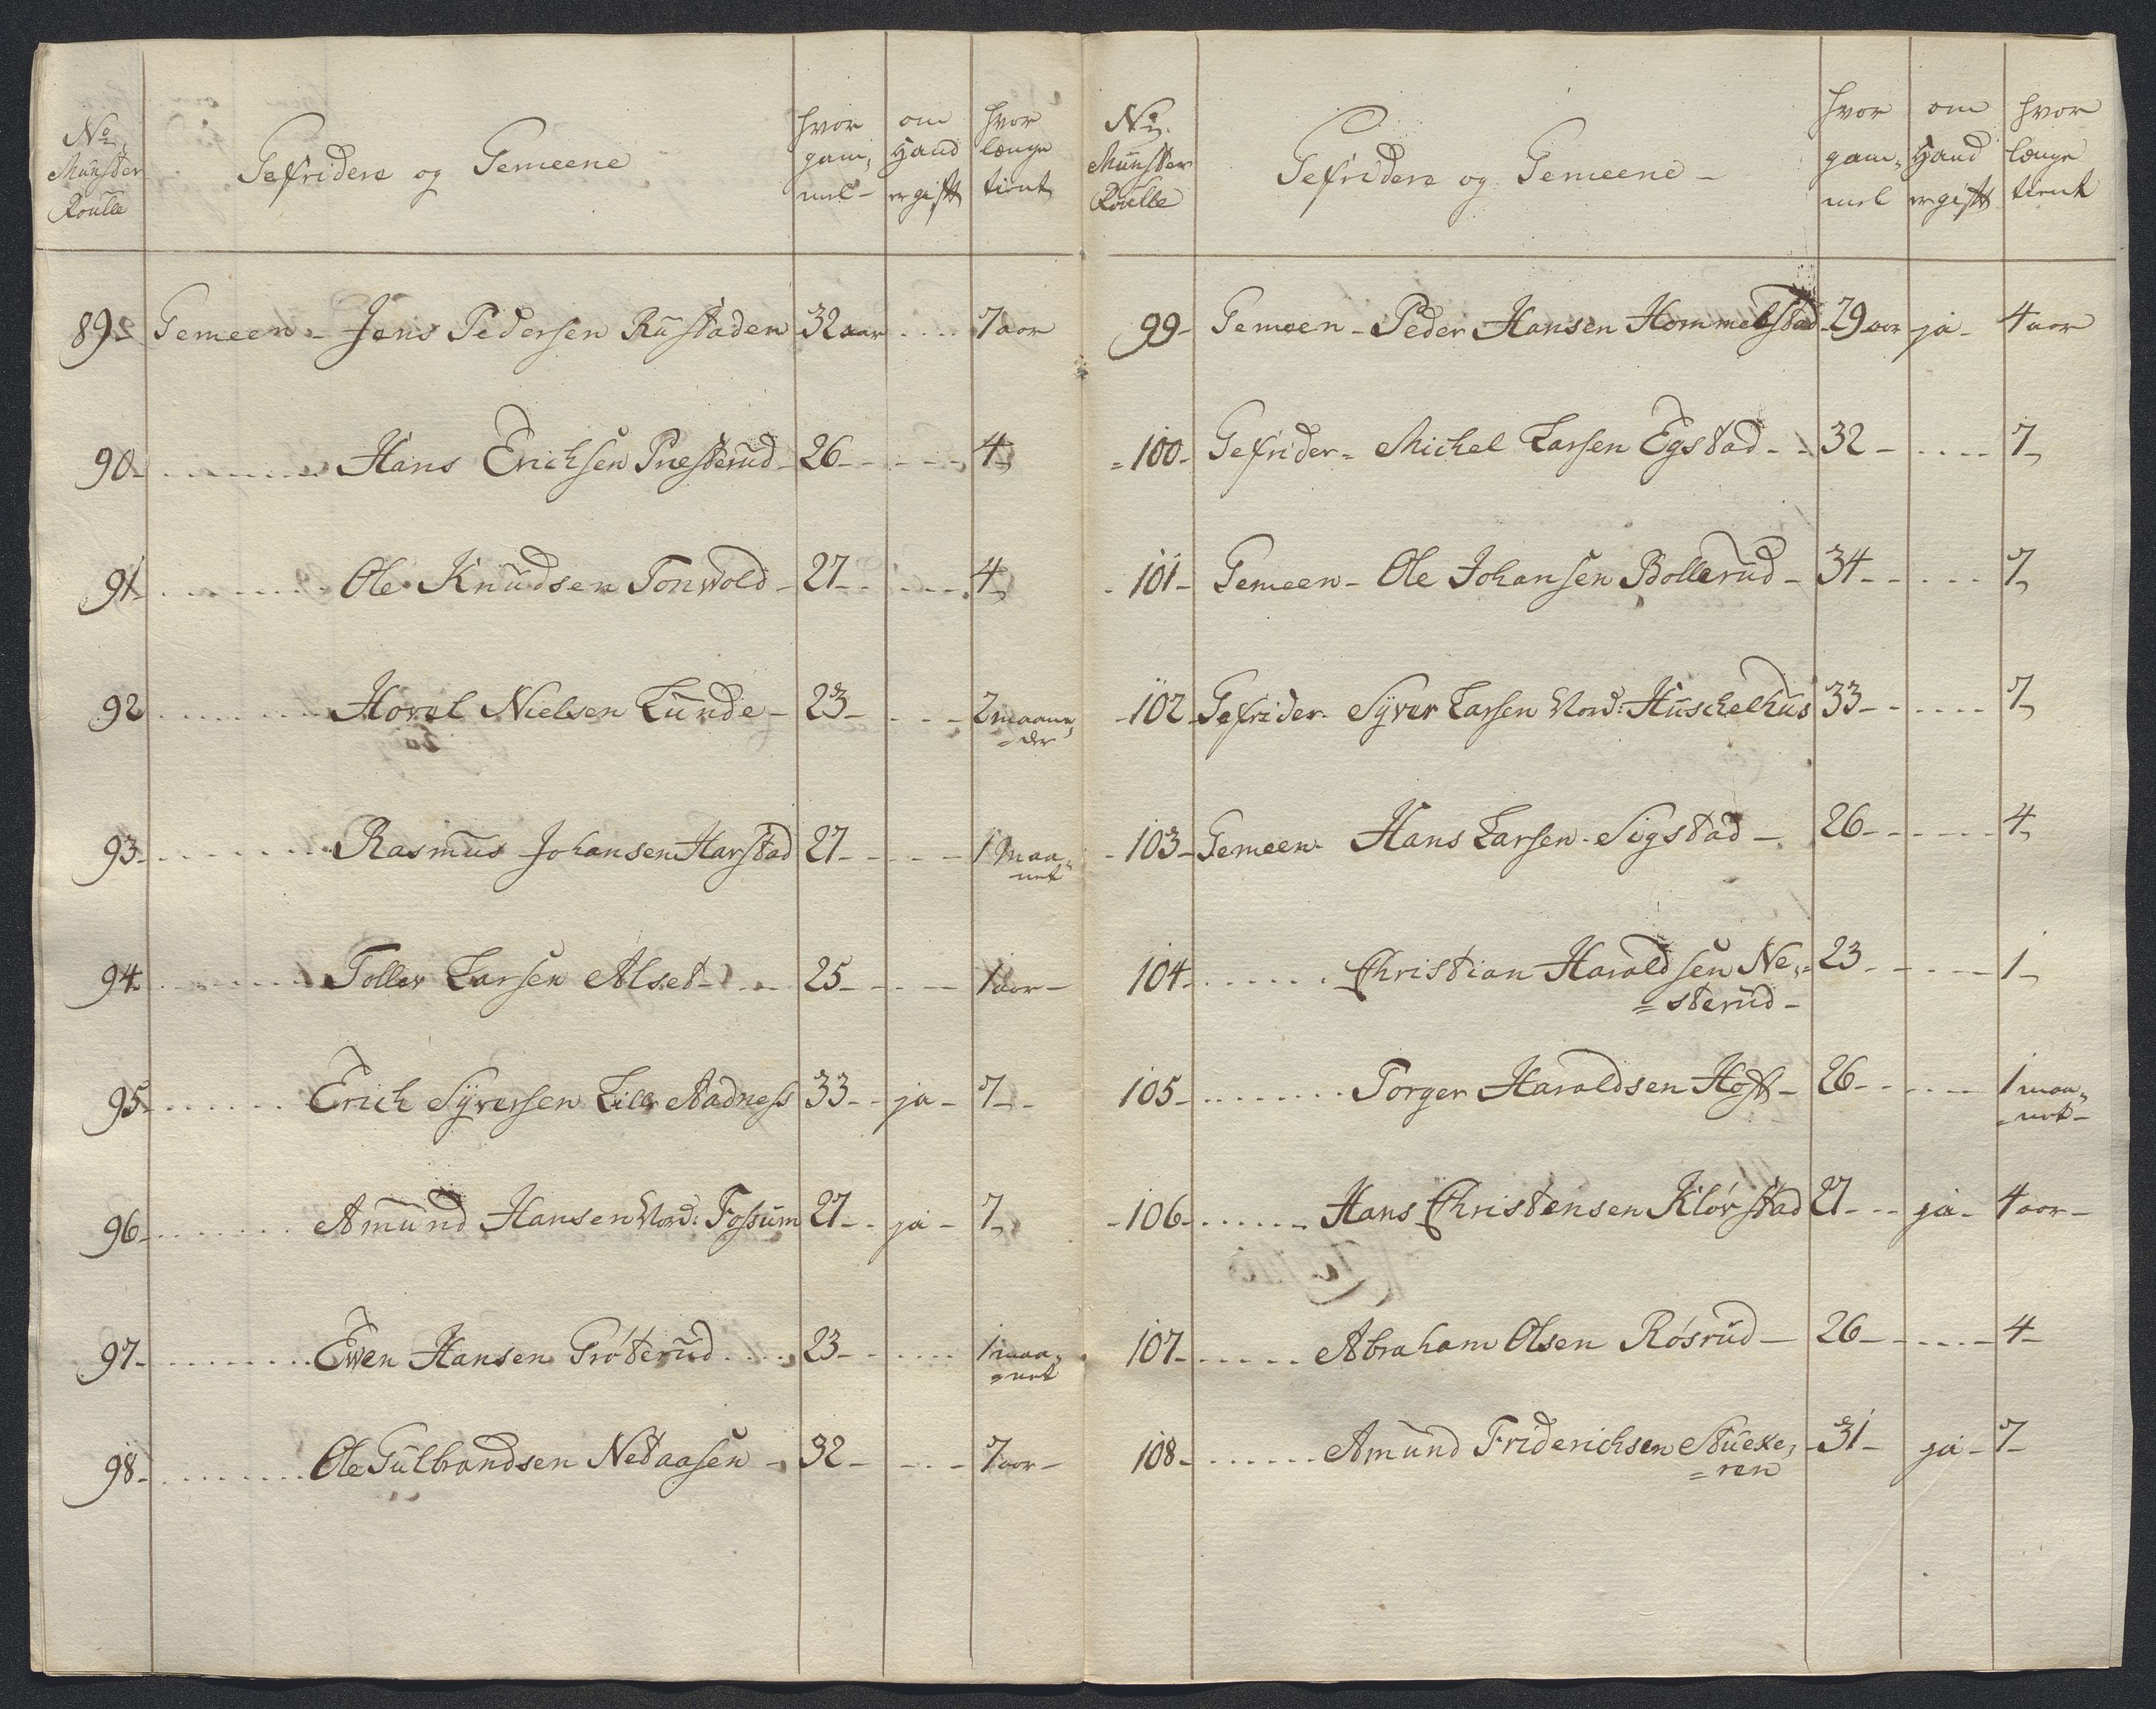 No
Munster
Roulle
Gefridere og Gemeene
hvor
gam,
mel-
om
Hand
er gift
hvor
længe
tient
89- Gemeen- Jens Pedersen Rustaden 32 aar .... 7 aar
90- ........ Hans Erichsen Presterud- 26- ---- 4,
91- ........ Ole Knudsen Tonwold- 27- ---- 4,
92 ........ Hovel Nielsen Lunde- 23- ---- 2 maane,
=der
93- ........ Rasmus Johansen Harstad 27- ---- 1 Maa,
net
94 ........ Toller Larsen Alset- 25- ---- 1 aar-
95- ........ Erich Syversen Lille Aadness 33- ja- 7-
96- ........ Amund Hansen Nord: Fossum 27- ja- 7,
97- ........ Ewen Hansen Gróterud .... 23- ---- 1 maa,
=net
98- ........ Ole Gulbrandsen Netaasen- 32- ---- 7 aar-
No
Munster
Roulle
Gefridere og Gemeene-
hvor
gam-
mel
om
Hand
er gift
hvor
længe
tient
99- Gemeen- Peder Hansen Hommelstad 29 aar ja- 4 aar
=100- Gefrider= Michel Larsen Egstad- 32- .... 7,
-101- Gemeen- Ole Johansen Bollerud- 34- .... 7,
-102- Gefrider- Syver Larsen Nord: Huschelhus 33- .... 7,
-103- Gemeen- Hans Larsen Sigstad- 26- .... 4,
104- ...... Christian Haraldsen Ne,- 23- ---- 1,
=sterud-
105- ........ Torger Haraldsen Hoft- 26- ---- 1 maa,
=net-
-106- ...... Hans Christensen Klørstad 27- ja- 4 aar-
107- ...... Abraham Olsen Røsrud- 26- ---- 4-
108- ...... Amund Friderichsen Stuexe,- 31- ja- 7-
=ren